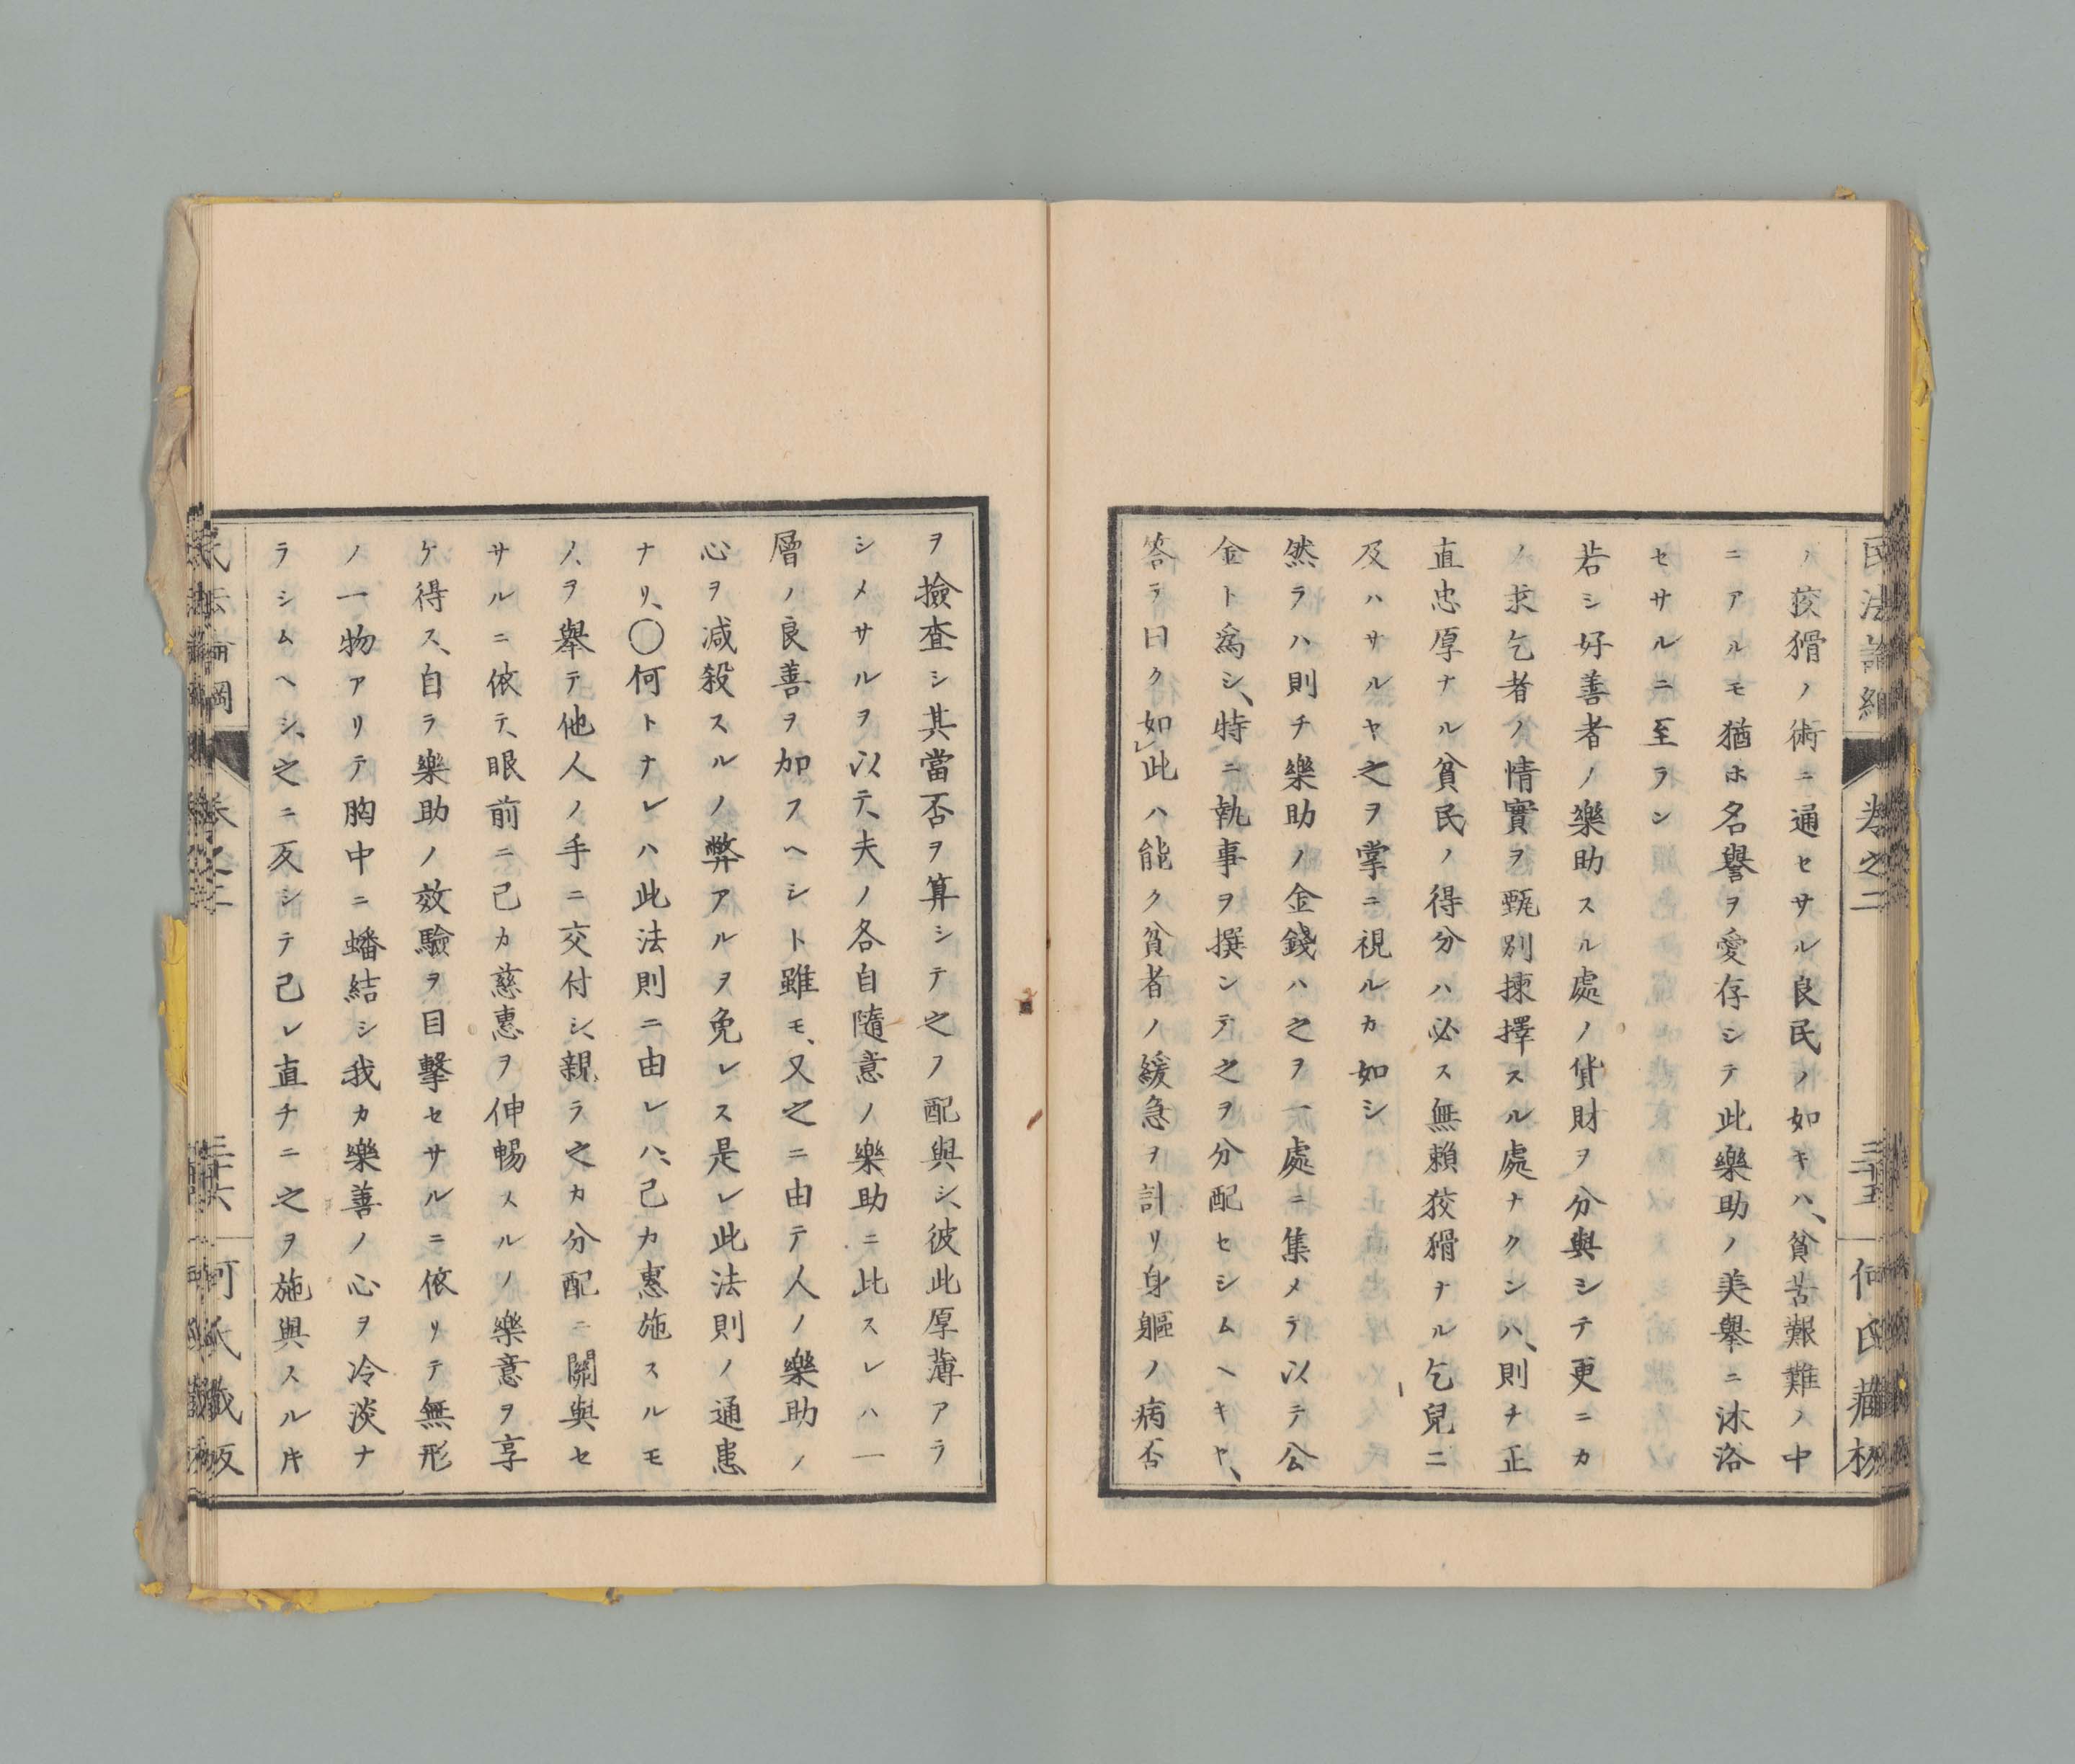 民法論綱 卷之二 三十五 何氏藏板
ノ狡猾ノ術ニ通セサル良民ノ如キハ、貧苦艱難ノ中
ニアルモ猶ホ名譽ヲ愛存シテ此樂助ノ美舉ニ沐浴
セサルニ至ラン
若シ好善者ノ樂助スル處ノ貨財ヲ分與シテ更ニカ
ノ求乞者ノ情實ヲ甄別揀擇スル處ナクンハ、則チ正
直忠厚ナル貧民ノ得分ハ必ス無賴狡猾ナル乞兒ニ
及ハサルヤ之ヲ掌ニ視ルカ如シ
然ラハ則チ樂助ノ金錢ハ之ヲ一處ニ集メテ以テ公
金ト爲シ、特ニ執事ヲ撰ンテ之ヲ分配セシムヘキヤ、
答テ曰ク如此ハ能ク貧者ノ緩急ヲ計リ身軀ノ病否
ヲ撿査シ其當否ヲ算シテ之ノ配與シ、彼此厚薄アラ
シメサルヲ以テ、夫ノ各自隨意ノ樂助ニ比スレハ一
層ノ良善ヲ加フヘシト雖モ、又之ニ由テ人ノ樂助ノ
心ヲ減殺スルノ弊アルヲ免レス是レ此法則ノ通患
ナリ、〇何トナレハ此法則ニ由レハ、己カ惠施スルモ
ノヲ舉テ他人ノ手ニ交付シ、親ラ之カ分配ニ關與セ
サルニ依テ、眼前ニ己カ慈惠ヲ伸暢スルノ樂意ヲ享
ケ得ス、自ラ樂助ノ效驗ヲ目擊セサルニ依リテ無形
ノ一物アリテ胸中ニ蟠結シ我カ樂善ノ心ヲ冷淡ナ
ラシムヘシ、之ニ反シテ己レ直チニ之ヲ施與スル𪜈
民法論綱 卷之二 三十六 何氏藏板